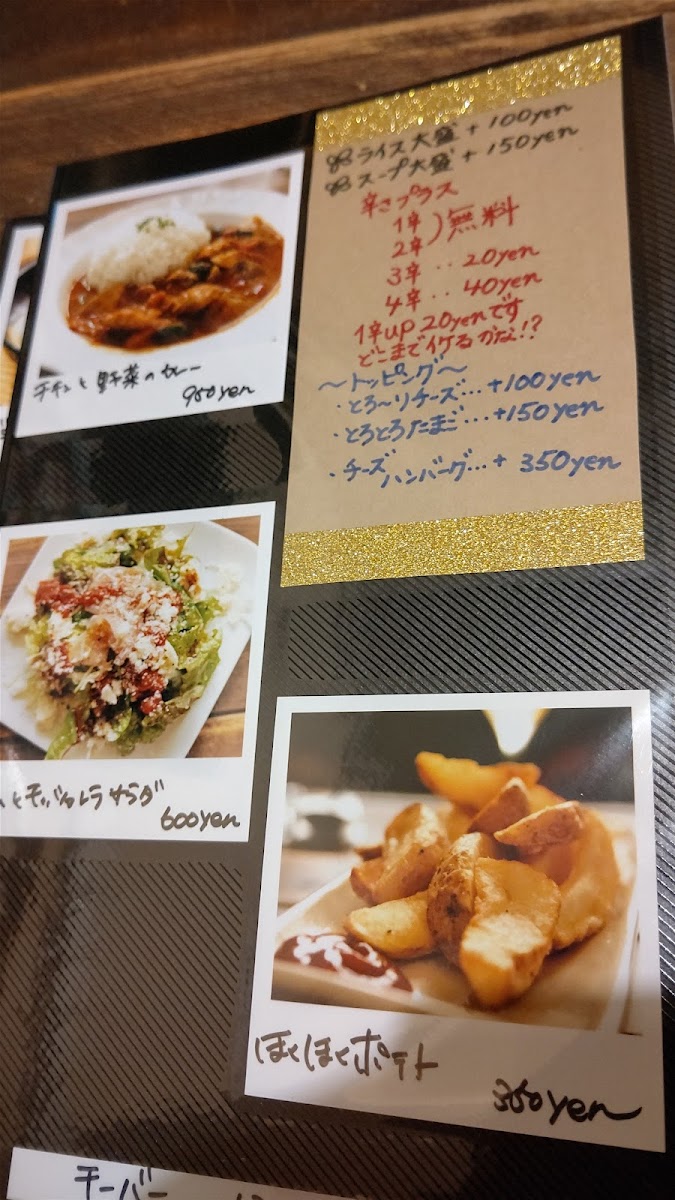 ライス大盛 + 100yen
スープ大盛 + 150yen
辛さプラス
1辛
2辛 ) 無料
3辛 ‥ 20yen
4辛 ‥ 40yen
1辛up 20yenです
どこまでイケるかな!?
〜トッピング〜
・とろ〜りチーズ…+100yen
・とろとろたまご…+150yen
・チーズ
ハンバーグ…+ 350yen
チキンと野菜のカレー
950yen
とモッツァレラサラダ
600yen
ほくほくポテト
350yen